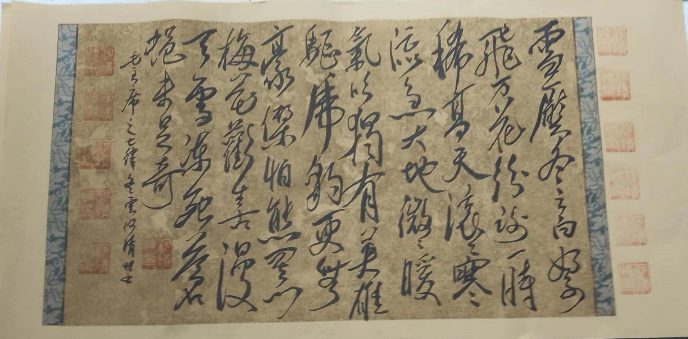 雪壓冬云白絮
飛万花紛謝一時
稀高天滾々寒
流急大地微々暖
氣吹獨有英雄
驅虎豹更無
豪傑怕熊羆
梅花歡喜漫
天雪凍死蒼
蠅未足奇
毛主席之七律冬雲